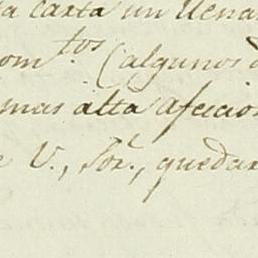 a carta un Uena
om.tos (algunos d
mas alta aficio
e V., Sor., quedar